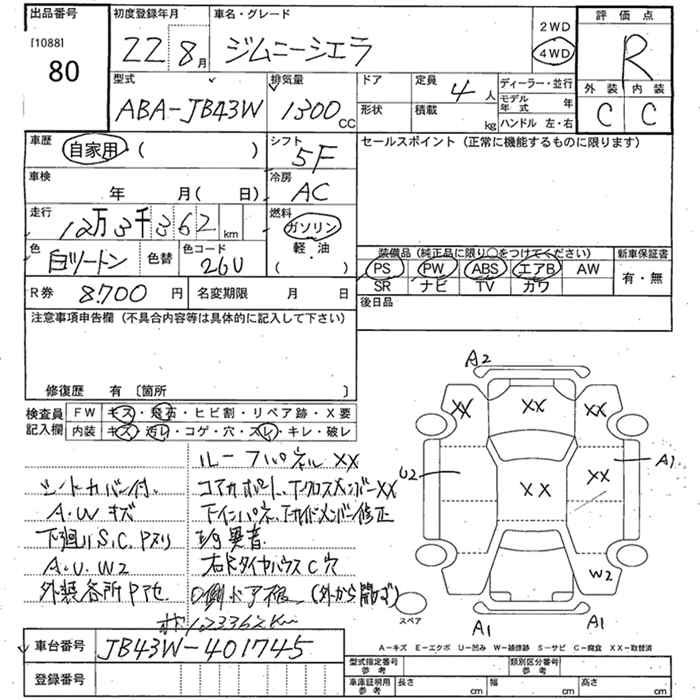 出品番号 初度登録年月 車名・グレード 評価点
[1088]
80
22 8月 ジムニーシエラ 2WD 4WD R
型式 排気量 ドア 定員 ディーラー・並行 外装 内装
ABA-JB43W 1300CC 4人 モデル年式 年 C C
形状 積載 kg ハンドル 左・右
車歴 シフト セールスポイント(正常に機能するものに限ります)
自家用 ( ) 5F
車検 冷房
年 月( 日) AC
走行 燃料
12万3千362km ガソリン
色 色替 色コード 軽・油
白ツートン 26U ( )
装備品(純正品に限り○をつけてください) 新車保証書
PS PW ABS エアB AW 有・無
SR ナビ TV カワ
R券 8700円 名変期限 月 日 後日品
注意事項申告欄(不具合内容等は具体的に記入して下さい)
修復歴 有〔箇所 〕
検査員記入欄 FW キズ・飛石・ヒビ割・リペア跡・X要
内装 キズ・汚れ・コゲ・穴・スレ・キレ・破レ
ルーフパネルXX
シートカバー付. コアサポート、Fクロスメンバー XX
A.Wキズ
下廻りS.C.Pスリ 異音
A.U.W2 右Rタイヤハウス C穴
外装各所Pアセ (外から開けず)
123362km
A2
XX XX XX
U2 XX XX A1
W2
スペア A1 A1
A-キズ E-エクボ U-凹み W-補修跡 S-サビ C-腐食 XX-取替済
車台番号 JB43W-401745
登録番号
型式指定番号 参考 類別区分番号 参考
車庫証明用 参考 長さ cm 幅 cm 高さ cm